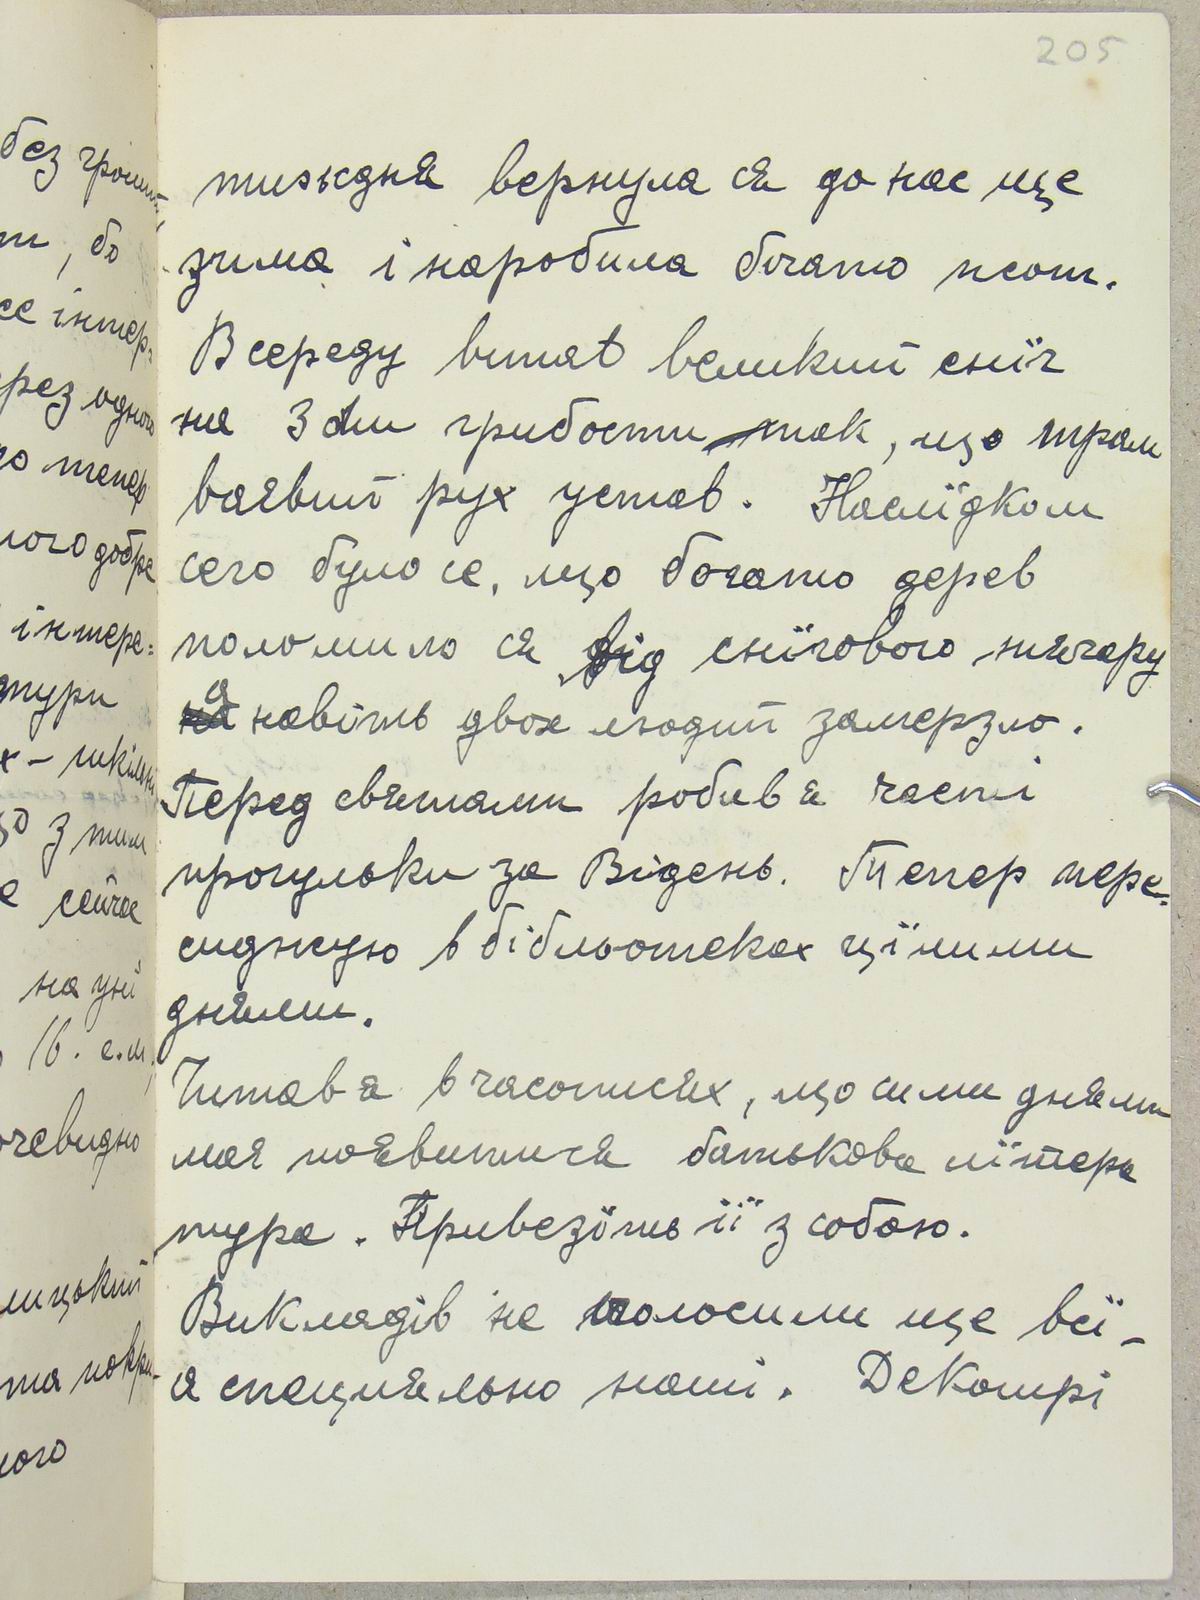 205
тиждня вернула ся до нас ще
зима і наробила богато псот.
В середу впав великий сніг
на 3 дм грубости так, що трам
ваєвий рух устав. Наслїдком
сего було се, що богато дерев
поломило ся від снїгового тягару
а навіть двох людий замерзло.
Перед святами робив я часті
прогульки за Відень. Тепер пере-
сиджую в бібльотеках цїлими
днями.
Читав я в часописях, що сими днями
має появитися батькова лїтера
тура. Привезїть її з собою.
Викладів не голосили ще всї -
а специяльно наші. Декотрі
без гроши
т, бо
се інтер-
через одного
тепер
ного добре
інтере-
тури
х - шкільн
з тим
е сейчас
на унї
16. с.м.
очевидно
лицький
та покри-
ного